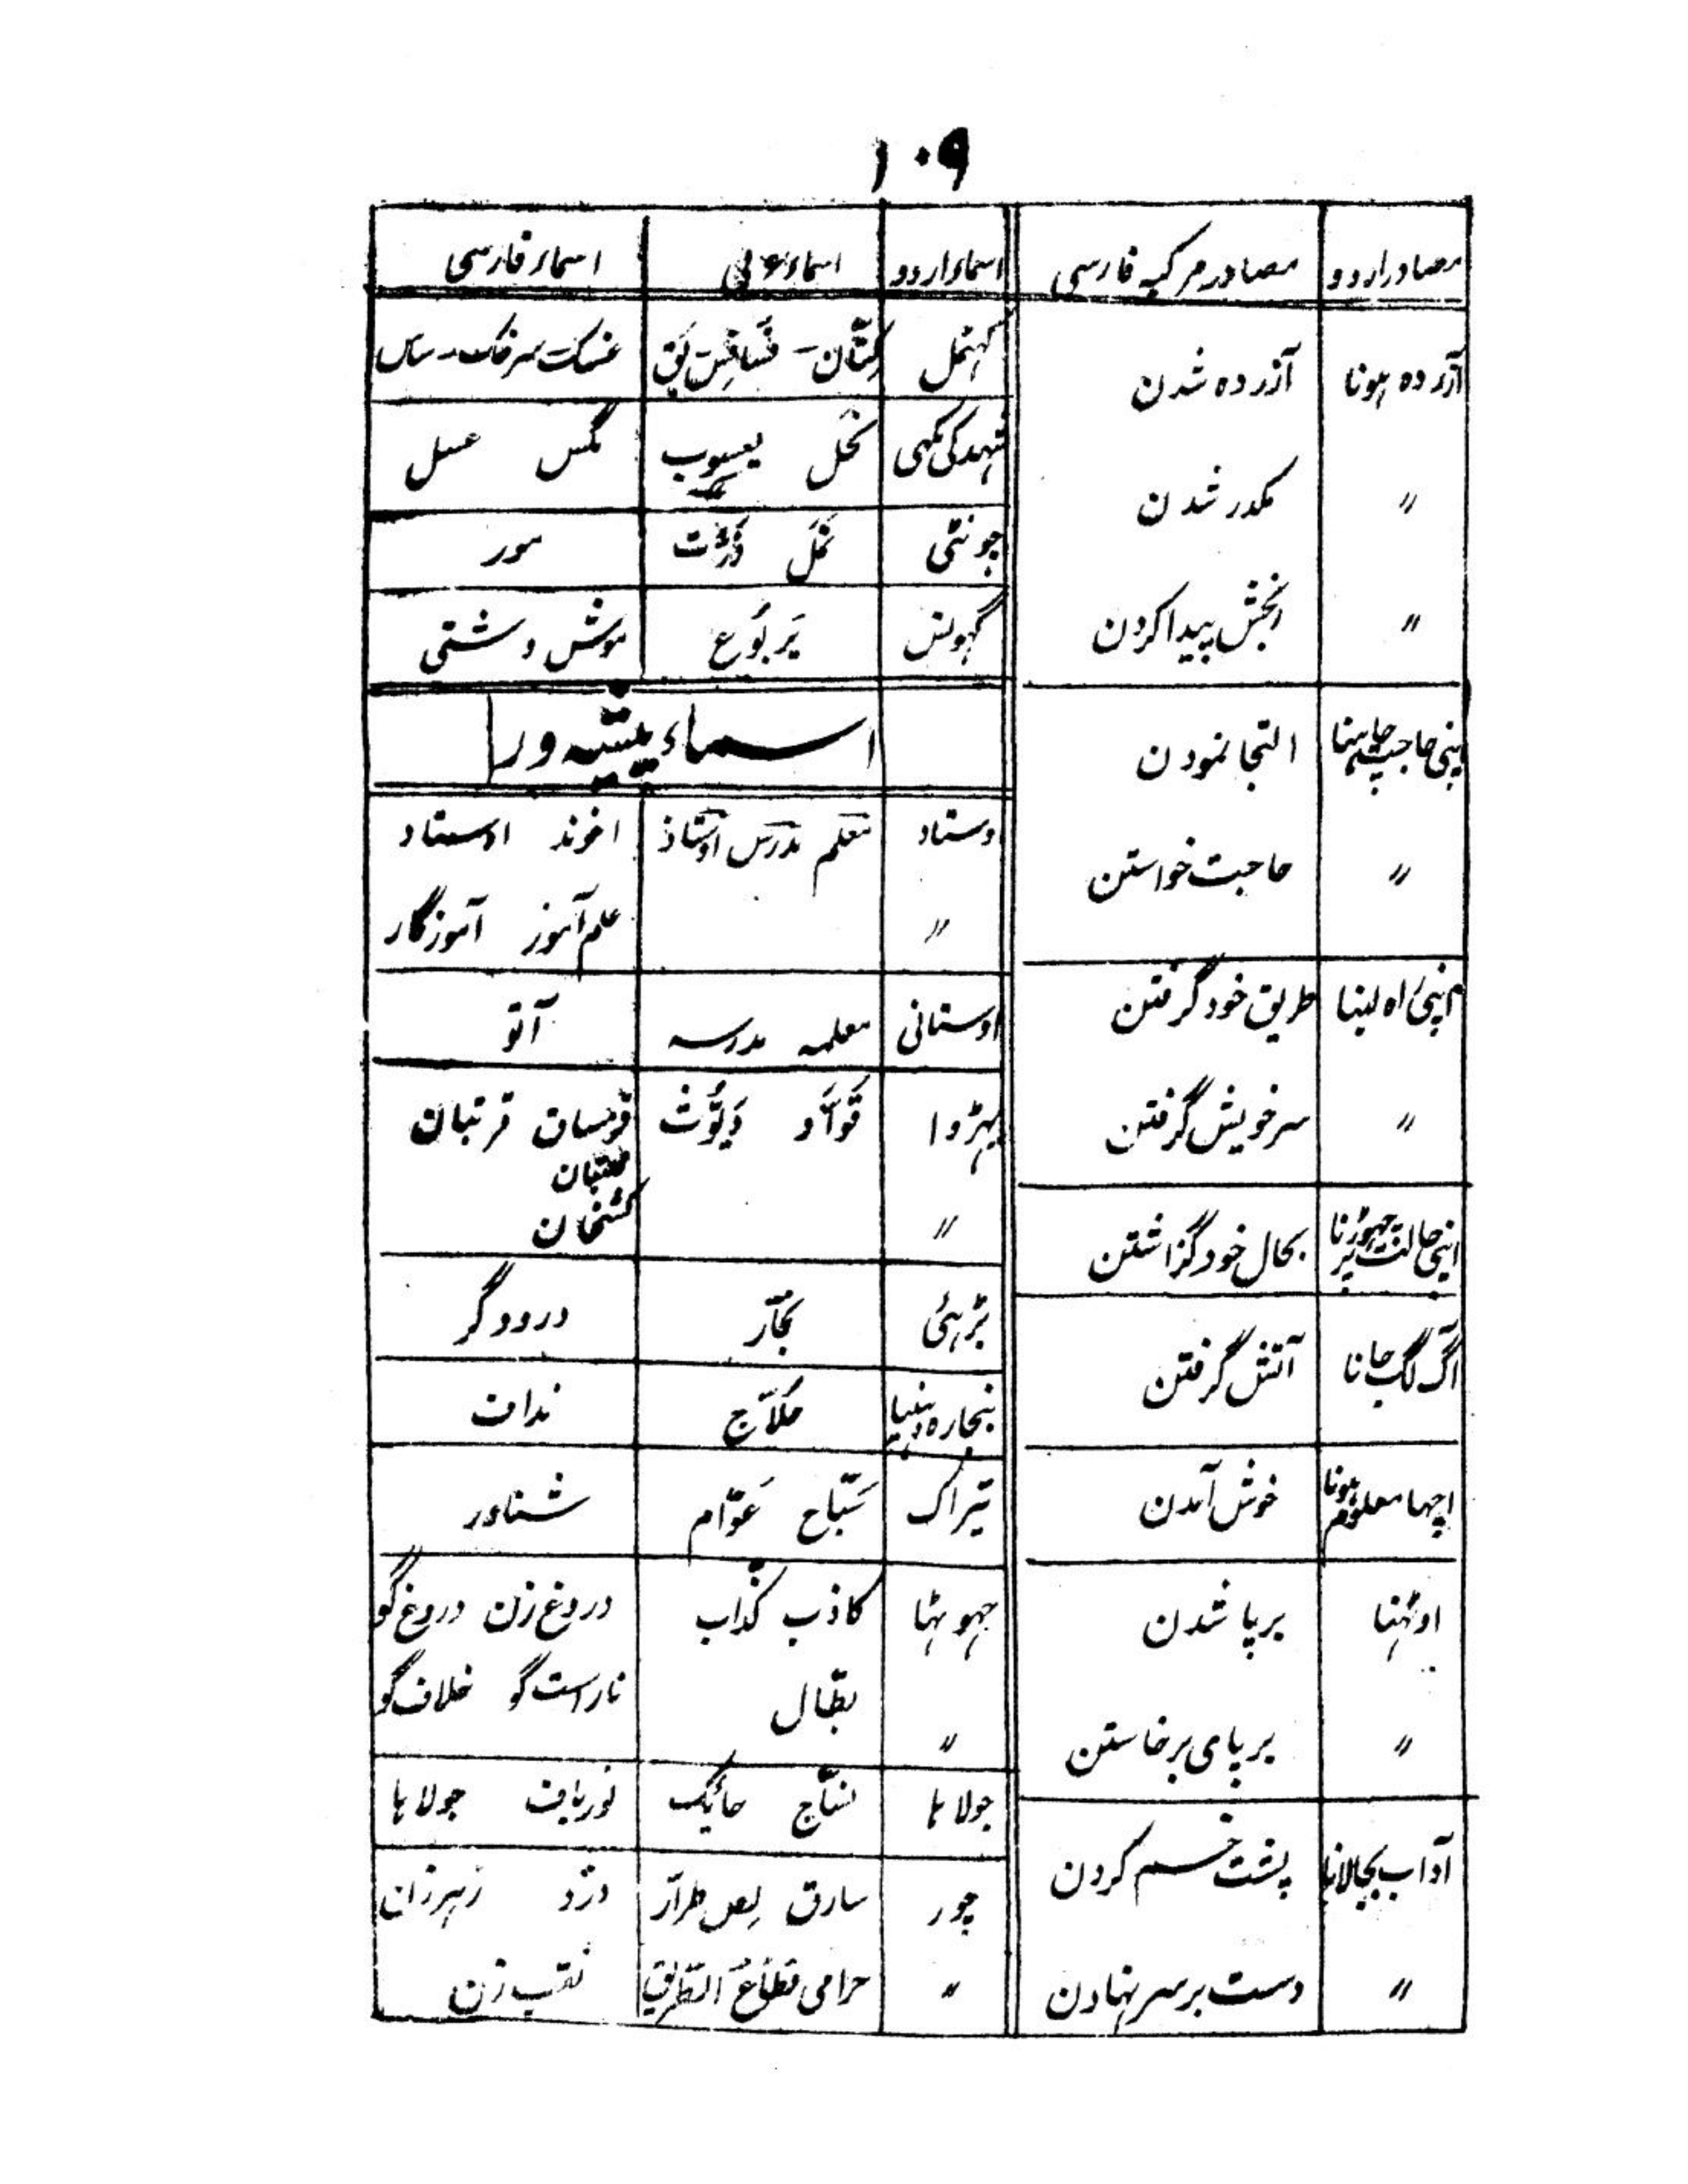 ۱۰۹
مصادر اردو مصادر مرکبہ فارسی
آزردہ ہونا آزردہ شدن
〃 مکدر شدن
〃 رنجش پیدا کردن
اپنی حاجت چاہنا التجا نمودن
〃 حاجت خواستن
اپنی راہ لینا طریق خود گرفتن
〃 سر خویش گرفتن
اپنی حالت پر چہوڑنا بحال خود گزاشتن
آگ لگ جانا آتش گرفتن
اچہا معلوم ہونا خوش آمدن
اوٹہنا برپا شدن
〃 بر پای برخاستن
آداب بجالانا پشت خم کردن
〃 دست بر سر نہادن
اسماء اردو اسماء عربی اسماء فارسی
کہٹمل کتّان - فسافس بق غسک سرخک - ساس
شہد کی مکہی نحل یعسوب مگس عسل
چونٹی نمل ذرّت مور
گہونس یَربُوع موش دشتی
اسماء پیشہ ور
وستاد معلم مدرس اوستاذ اخوند اوستاد
〃 علم آموز آموزگار
اوستانی معلمہ مدرسہ آتو
بہڑوا قَوّاد دَیُّوث قرمساق قرتبان
قلتبان
〃 کشخان
بڑہئی نجّار درودگر
بنجارہ دہنیا حَلّاج نداف
تیراک سَبّاح عَوّام شناور
جہوہٹا کاذب کذّاب دروغ زن دروغ گو
〃 بطّال ناراست گو خلاف گو
جولاہا نسّاج حائک نورباف جولاہا
چور سارق لِص طرّار دزد رہزنان
〃 حرامی قطّاع الطریق نقب زن